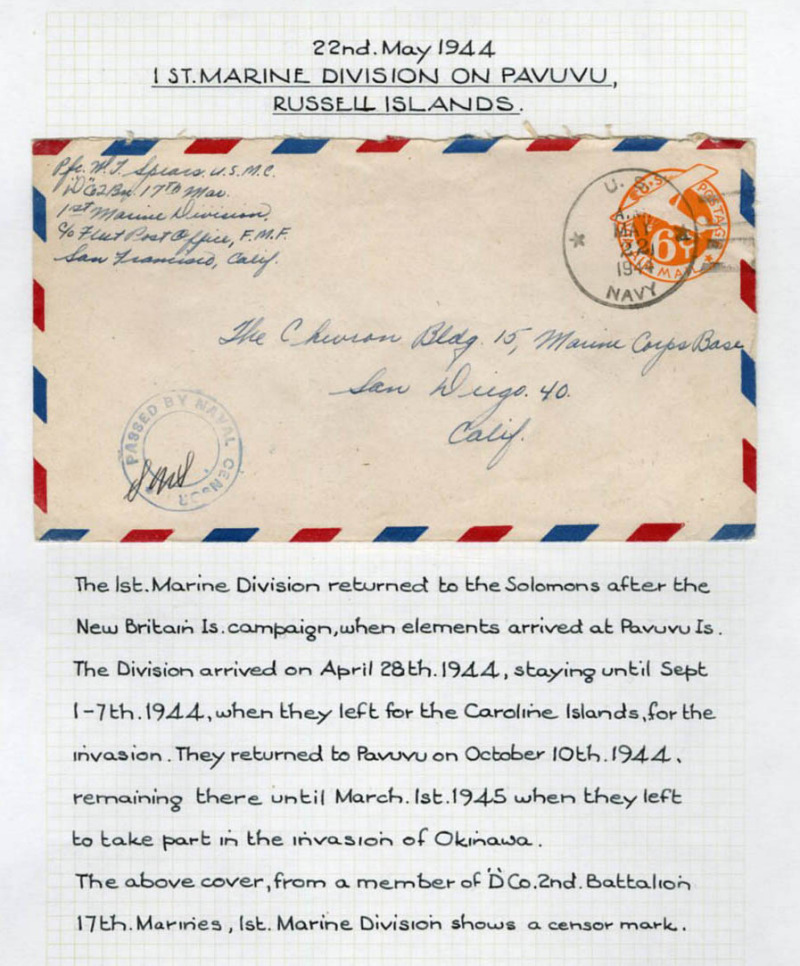 22nd. May 1944
1 ST. MARINE DIVISION ON PAVUVU,
RUSSELL ISLANDS.
Pfc. W. J. Spears. U.S.M.C.
"D" Co 2 Bn. 17th Mar.
1st Marine Division
c/o Fleet Post Office, F.M.F.
San Francisco, Calif.
U.S. POSTAGE
6¢
AIR MAIL
U. S.
MAY
22
1944
NAVY
The Chevron Bldg. 15, Marine Corps Base
San Diego. 40.
Calif.
PASSED BY NAVAL CENSOR
The 1st. Marine Division returned to the Solomons after the
New Britain Is. campaign, when elements arrived at Pavuvu Is.
The Division arrived on April 28th. 1944, staying until Sept
1-7th. 1944, when they left for the Caroline Islands, for the
invasion. They returned to Pavuvu on October 10th. 1944,
remaining there until March. 1st. 1945 when they left
to take part in the invasion of Okinawa.
The above cover, from a member of "D" Co. 2nd. Battalion
17th. Marines, 1st. Marine Division shows a censor mark.